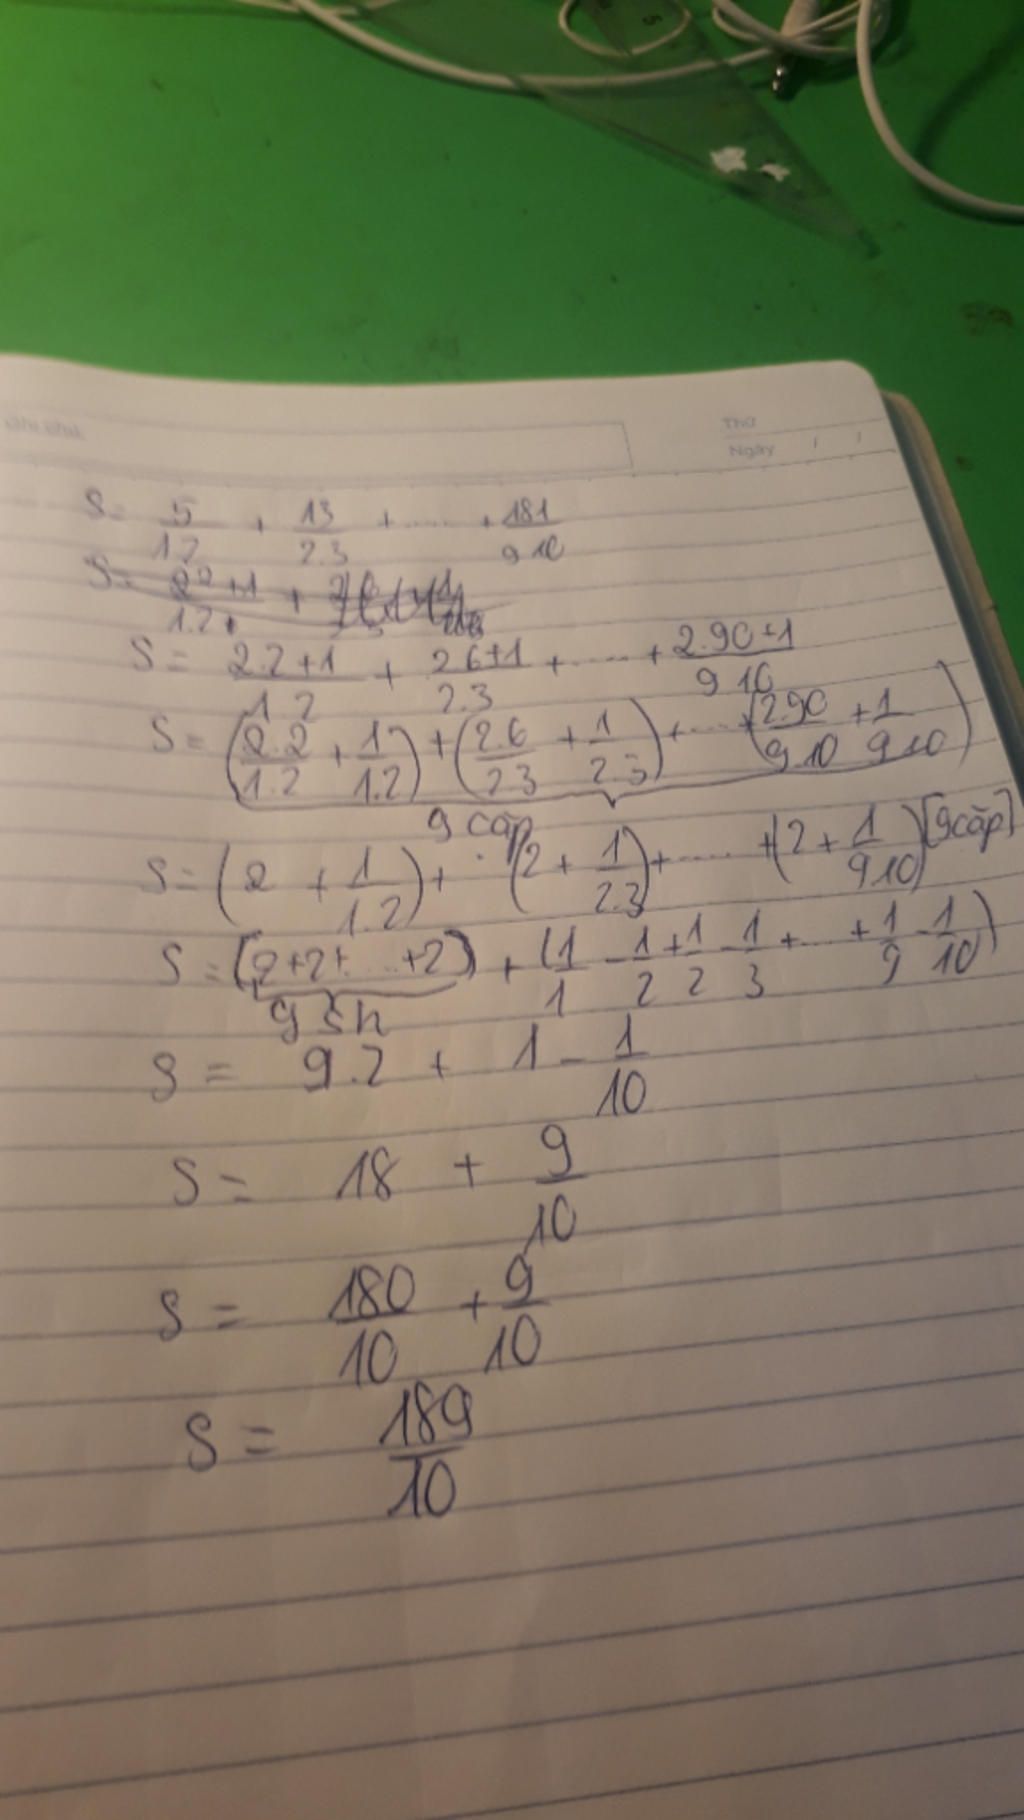 Thứ
Ngày / /
S = 5/1.2 + 13/2.3 + ..... + 181/9.10
S = 2.2+1/1.2 + 2.6+1/2.3 + ..... + 2.90+1/9.10
S = (2.2/1.2 + 1/1.2) + (2.6/2.3 + 1/2.3) + ..... + (2.90/9.10 + 1/9.10)
9 cặp
S = (2 + 1/1.2) + (2 + 1/2.3) + ..... + (2 + 1/9.10) [9 cặp]
S = (2+2+...+2) + (1/1 - 1/2 + 1/2 - 1/3 + ..... + 1/9 - 1/10)
9 sh
S = 9.2 + 1 - 1/10
S = 18 + 9/10
S = 180/10 + 9/10
S = 189/10